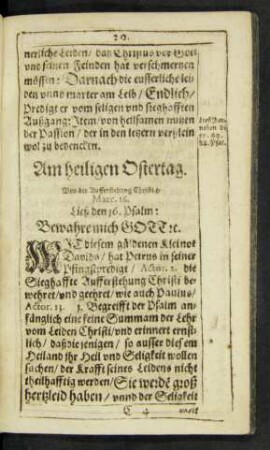 29.
nerliche Leiden/ das Christus vor Gott
vnd seinen Feinden hat verschmertzen
müssen: Darnach die eusserliche lei-
den vnnd marter am Leib/ Endlich/
Predigt er vom seligen vnd sieghafften
Außgang: Item/ von heilsamen nutzen
der Passion/ der in den letzern verßlein
wol zu bedencken.
Am heiligen Ostertag.
Von der Aufferstehung Christi/
Marc. 16.
Ließ den 16. Psalm:
Bewahre mich GOTT ꝛc.
MIT diesem güldenen Kleinot
Davids/ hat Petrus in seiner
Pfingstpredigt/ Actor. 2. die
Sieghaffte Aufferstehung Christi be-
wehret/ vnd geehret/ wie auch Paulus/
Actor. 13. Begreifft der Psalm an-
fänglich eine feine Summam der Lehr
vom Leiden Christi/ vnd erinnert ernst-
lich/ daß die jenigen/ so ausser diesem
Heiland ihr Heil vnd Seligkeit wollen
suchen/ der Krafft seines Leidens nicht
theilhafftig werden/ Sie werdē groß
hertzleid haben/ vnnd der Seligkeit
C 4